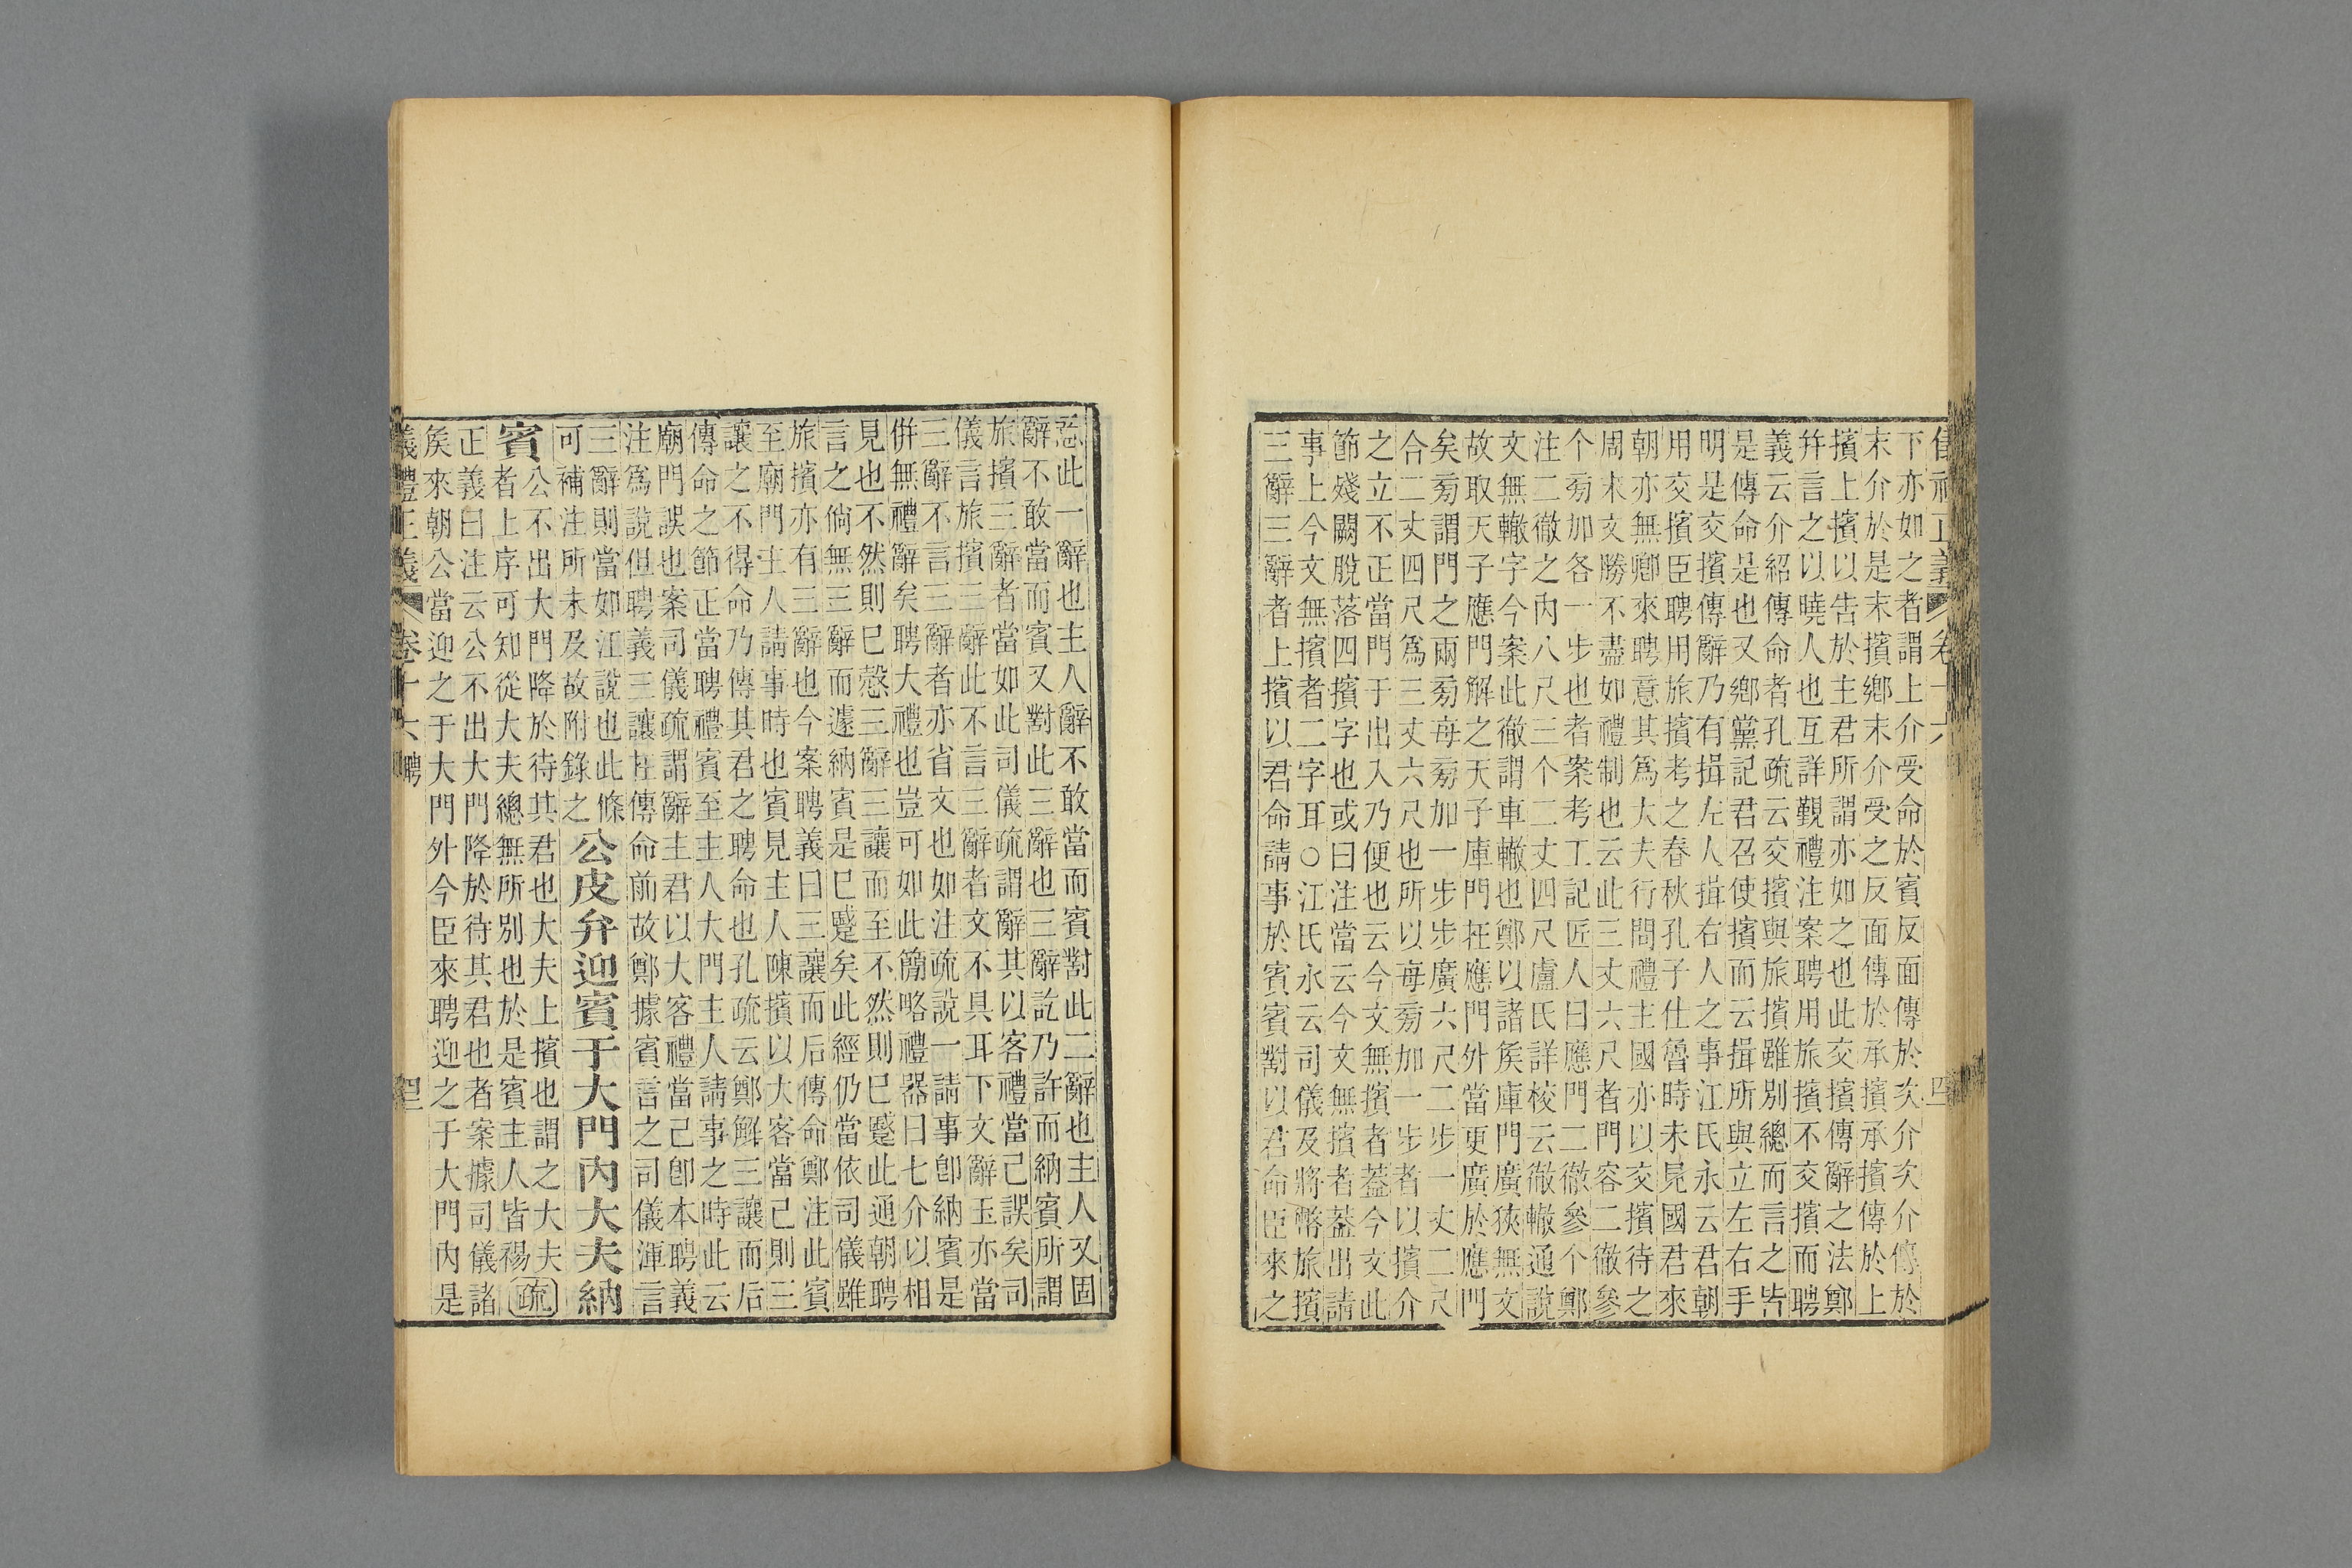 下亦如之者謂上介受命於賓反面傳於次介次介傳於
末介於是末擯鄉末介受之反面傳於承擯承擯傳於上
擯上擯以告於主君所謂亦如之也此交擯傳辭之法鄭
幷言之以曉人也互詳覲禮注案聘用旅擯不交擯而聘
義云介紹傳命者孔疏云交擯與旅擯雖別總而言之皆
是傳命是也又鄉黨記君召使擯而云揖所與立左右手
明是交擯傳辭乃有揖左人揖右人之事江氏永云君朝
用交擯臣聘用旅擯考之春秋孔子仕魯時未見國君來
朝亦無卿來聘意其爲大夫行問禮主國亦以交擯待之
周末文勝不盡如禮制也云此三丈六尺者門容二徹參
个旁加各一步也者案考工記匠人曰應門二徹參个鄭
注二徹之內八尺三个二丈四尺盧氏詳校云徹轍通說
文無轍字今案此徹謂車轍也鄭以諸矦庫門廣狹無文
故取天子應門解之天子庫門在應門外當更廣於應門
矣旁謂門之兩旁每旁加一步步廣六尺二步一丈二尺
合二丈四尺爲三丈六尺也所以每旁加一步者以擯介
之立不正當門于出入乃便也云今文無擯者葢今文此
節殘闕脫落四擯字也或曰注當云今文無擯者葢出請
事上今文無擯者二字耳○江氏永云司儀及將幣旅擯
三辭三辭者上擯以君命請事於賓賓對以君命臣來之
儀禮正義 卷十六
四
忩此一辭也主人辭不敢當而賓對此二辭也主人又固
辭不敢當而賓又對此三辭也三辭訖乃許而納賓所謂
旅擯三辭者當如此司儀疏謂辭其以客禮當己誤矣司
儀言旅擯三辭此不言三辭者文不具耳下文辭玉亦當
三辭不言三辭者亦省文也如注疏說一請事卽納賓是
倂無禮辭矣聘大禮也豈可如此簡略禮器曰七介以相
見也不然則已慤三辭三讓而至不然則已蹙此通朝聘
言之倘無三辭而遽納賓是已蹙矣此經仍當依司儀雖
旅擯亦有三辭也今案聘義曰三讓而后傳命鄭注此賓
至廟門主人請事時也賓見主人陳擯以大客當己則三
讓之不得命乃傳其君之聘命也孔疏云鄭解三讓而后
傳命之節正當聘禮賓至主人大門主人請事之時此云
廟門誤也案司儀疏謂辭主君以大客禮當己卽本聘義
注爲說但聘義三讓在傳命前故鄭據賓言之司儀渾言
三辭則當如江說也此條
可補注所未及故附錄之
公皮弁迎賓于大門內大夫納
賓
公不出大門降於待其君也大夫上擯也謂之大夫
者上序可知從大夫總無所別也於是賓主人皆裼
疏
正義曰注云公不出大門降於待其君也者案據司儀諸
矦來朝公當迎之于大門外今臣來聘迎之于大門內是
儀禮正義 卷十六 聘